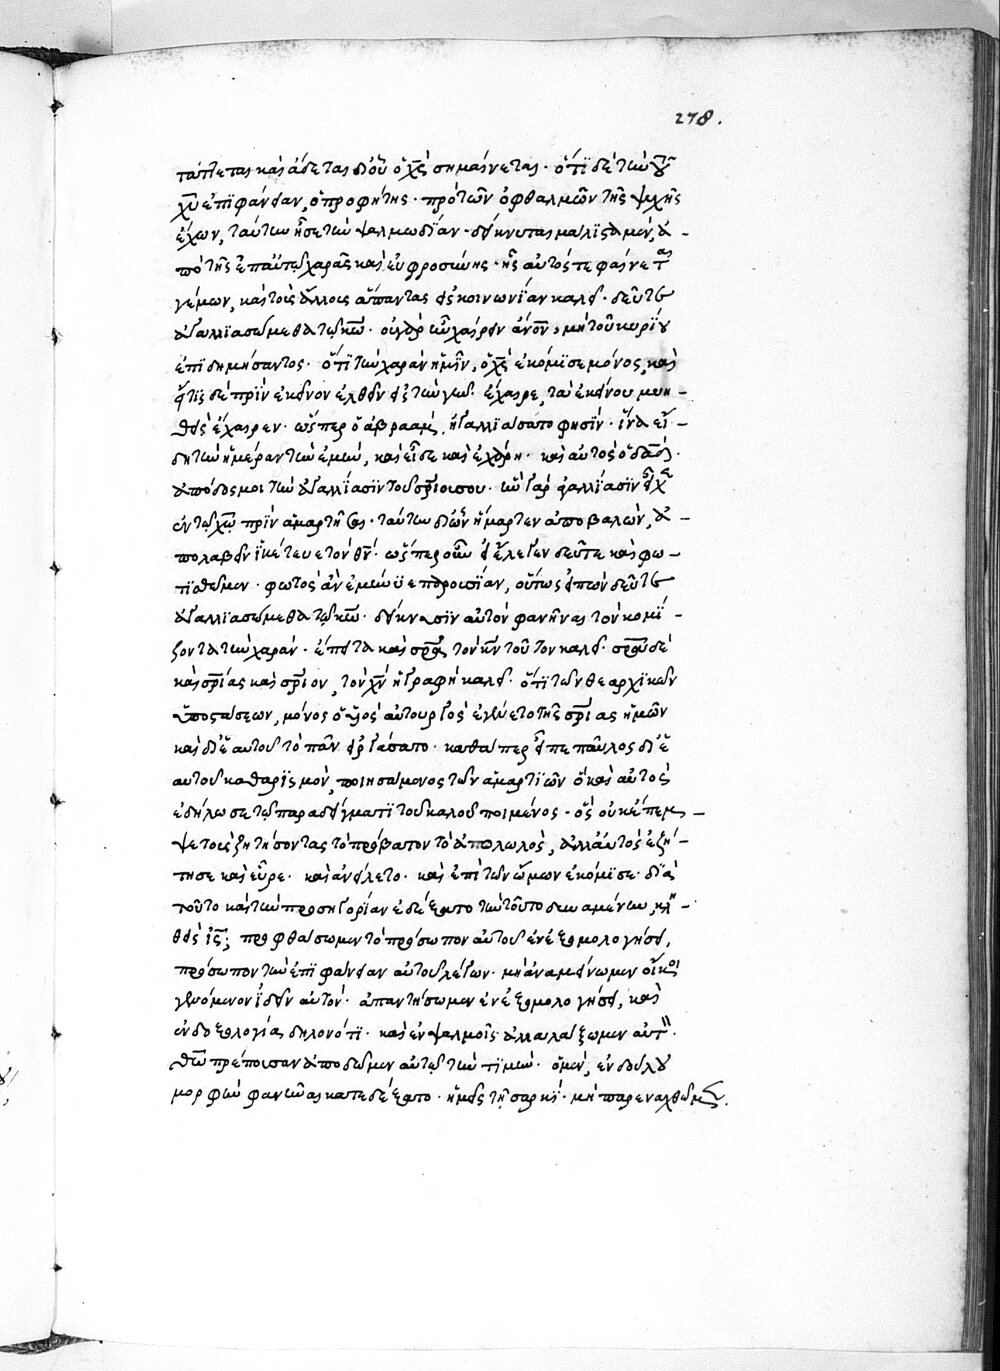 278.
τάττεται καὶ ᾄδεται δι' οὗ ὁ χς σημαίνεται· ὅτι δὲ τὴν τοῦ
χυ ἐπιφάνειαν, ὁ προφήτης· πρὸ τῶν ὀφθαλμῶν τῆς ψυχῆς
ἔχων, ταύτην ᾖσε τὴν ψαλμωδίαν· δείκνυται μάλιστα μὲν, ἀ-
πὸ τῆς ἐπ' αὐτῷ χαρᾶς καὶ εὐφροσύνης· ἧς αὐτός τε φαίνεται
γέμων, καὶ τοὺς ἄλλους ἅπαντας εἰς κοινωνίαν καλεῖ· δεῦτε
ἀγαλλιασώμεθα τῷ κω· οὐ γὰρ ἦν χαίρειν ἀνον, μὴ τοῦ κυρίου
ἐπιδημήσαντος· ὅτι τὴν χαρὰν ἡμῖν, ὁ χς ἐκόμισε μόνος, καὶ
εἴ τις δὲ πρὶν ἐκεῖνον ἐλθεῖν εἰς τὴν γῆν ἔχαιρε, τὰ ἐκείνου μυη-
θεὶς ἔχαιρεν· ὥσπερ ὁ ἀβραάμ, ἠγαλλιάσατο φησὶν· ἵνα εἴ-
δῃ τὴν ἡμέραν τὴν ἐμὴν, καὶ εἶδε καὶ ἐχάρη· καὶ αὐτὸς ὁ δαδ·
ἀπόδος μοι τὴν ἀγαλλίασιν τοῦ σριου σου· ἣν γὰρ ἀγαλλίασιν εἶχεν
ἐν τῷ χω πρὶν ἁμαρτῆσαι· ταύτην δι' ὧν ἥμαρτεν ἀποβαλὼν, ἀ-
πολαβεῖν ἱκέτευε τὸν θν· ὥσπερ οὖν εἰ ἔλεγεν δεῦτε καὶ φω-
τίσθωμεν· φωτὸς ἂν ἐμήνυε παρουσίαν, οὕτως εἰπὼν δεῦτε
ἀγαλλιασώμεθα τῷ κω· δείκνυσιν αὐτὸν φανῆναι τὸν κομί-
ζοντα τὴν χαράν· ἔπειτα καὶ σρα τὸν κν τοῦτον καλεῖ· σρα δὲ
καὶ σριας καὶ σριον, τὸν χν ἡ γραφὴ καλεῖ· ὅτι τῶν θεαρχικῶν
ὑποστάσεων, μόνος ὁ υς αὐτουργὸς ἐγένετο τῆς σριας ἡμῶν
καὶ δι' ἑαυτοῦ τὸ πᾶν εἰργάσατο· καθάπερ εἶπε παῦλος δι' ἑ-
αυτοῦ καθαρισμὸν, ποιησάμενος τῶν ἁμαρτιῶν ὃ καὶ αὐτὸς
ἐδήλωσε τῷ παραδείγματι τοῦ καλοῦ ποιμένος· ὃς οὐκ ἔπεμ-
ψε τοὺς ζητήσοντας τὸ πρόβατον τὸ ἀπολωλὸς, ἀλλ' αὐτὸς ἐζή-
τησε καὶ εὗρε· καὶ ἀνείλετο· καὶ ἐπὶ τῶν ὤμων ἐκόμισε· διὰ
τοῦτο καὶ τὴν προσηγορίαν ἐδέξατο τὴν τοῦτο δυναμένην, κλη-
θεὶς ις; προφθάσωμεν τὸ πρόσωπον αὐτοῦ ἐν ἐξομολογήσει,
πρόσωπον τὴν ἐπιφάνειαν αὐτοῦ λέγων· μὴ ἀναμείνωμεν οἴκοι
γενόμενον ἰδεῖν αὐτόν· ἀπαντήσωμεν ἐν ἐξομολογήσει, καὶ
ἐν δοξολογίᾳ δηλονότι· καὶ ἐν ψαλμοῖς ἀλαλάξωμεν αὐτῷ·
θῶ πρέπουσαν ἀποδῶμεν αὐτῷ τὴν τιμήν· ὁ μὲν, ἐν δούλου
μορφῇ φανῆναι κατεδέξατο· ἡμεῖς τῇ σαρκὶ· μὴ παρενεχθῶμεν.